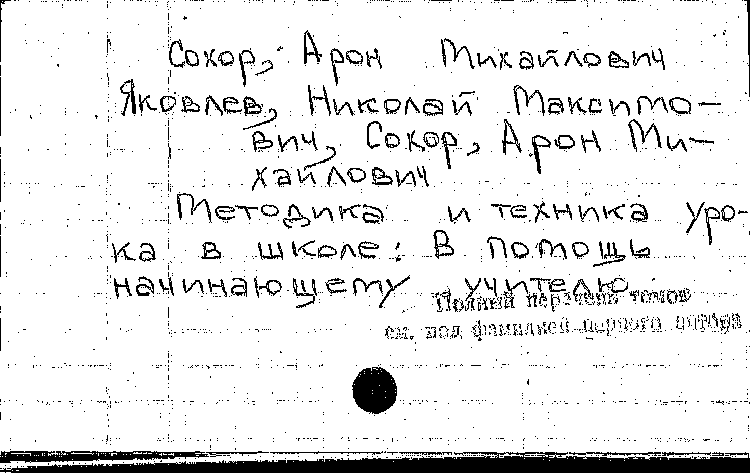 Сохор, Арон Михайлович
Яковлев, Николай Максимо-
вич, Сохор, Арон Ми-
хайлович
Методика и техника уро-
ка в школе: В помощь
начинающему учителю.
Полный перечень томов
см. под фамилией первого автора